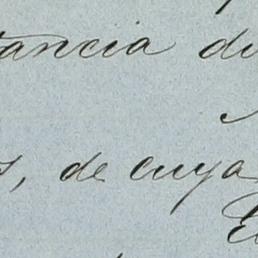 tancia du
s, de cuya
E